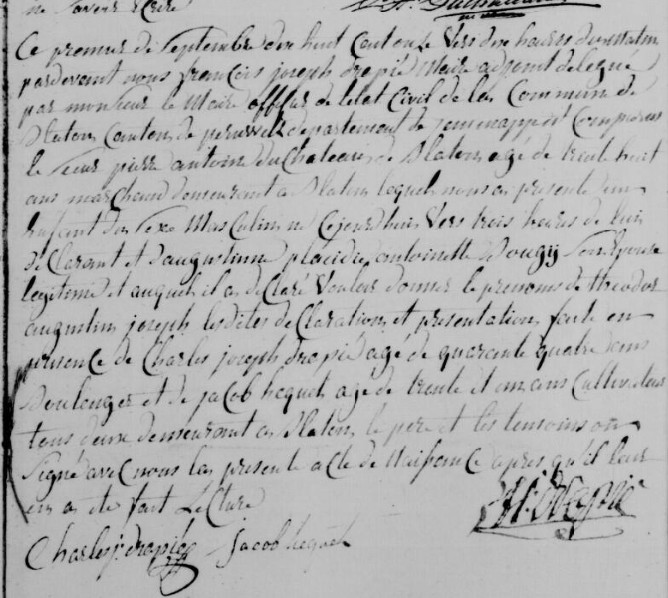 ne savoir Ecrire
Ce premier de Septembre dix huit Cent onze Vers dix heures du matin
pardevant nous francois joseph drapié Maire adjoint delegué
par monsieur le Maire officier de letat Civil de la Commune de
Blaton Canton de peruwelz departement de jemmappes Comparu
le sieur pierre antoine duChateau de Blaton agé de trente huit
ans marchand domeurant a Blaton lequel nous a presenté un
Enfant du sexe Masculin né cejourdhui Vers trois heures de lui
déClarant et daugustinne placide antoinette Dougij son Epouse
legitime et auquel il a deClaré Vouloir donner le prenoms de theodor
augustin joseph lesdites deClaration et presentation faite en
presence de Charles joseph drapié agé de quarante quatre ans
Boulanger et de jacob hequet agé de trente et un ans Cultivateur
tous deux demeurant a Blaton le pere et les temoins on
signé avec nous la presente acte de Naissance apres qu'il leur
en a ete fait LeCture
Charles j. drapiez jacob hequet